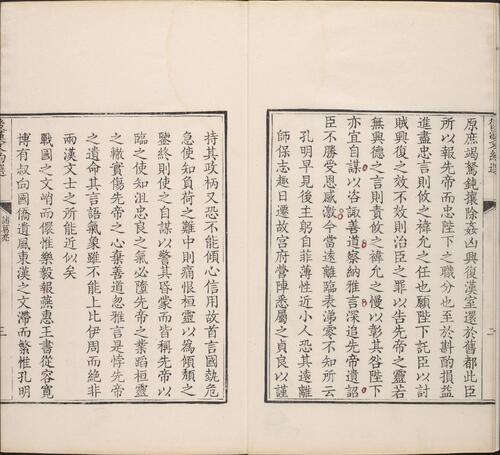 原庶竭駑鈍攘除姦凶興復漢室還於舊都此臣
所以報先帝而忠陛下之職分也至於斟酌損益
進盡忠言則攸之禕允之任也願陛下託臣以討
賊興復之效不效則治臣之罪以告先帝之靈若
無興德之言則責攸之禕允之慢以彰其咎陛下
亦宜自謀以咨諏善道察納雅言深追先帝遺詔
臣不勝受恩感激今當遠離臨表涕零不知所云
孔明早見後主躬自菲薄性近小人恐其遠離
師保志趣日遷故宮府營陣悉屬之貞良以謹
持其政柄又恐不能傾心信用故首言國勢危
急使知負荷之難中則痛恨桓靈以為傾頹之
鑒終則使之自謀以警其昏蒙而皆稱先帝以
臨之使知沮忠良之氣必墮先帝之業蹈桓靈
之轍實傷先帝之心棄善道忽雅言是悖先帝
之遺命其言語氣象雖不能上比伊周而絕非
兩漢文士之所能近似矣
戰國之文峭而儇惟樂毅報燕惠王書從容寬
博有叔向國僑遺風東漢之文滯而繁惟孔明
諸葛亮
三